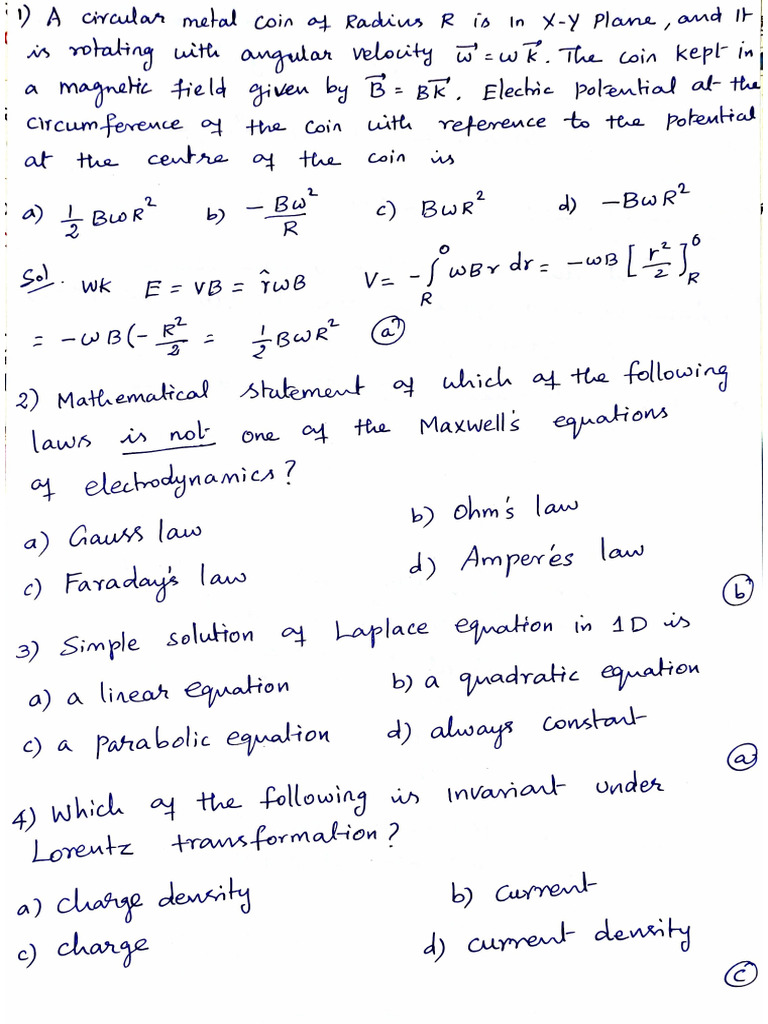 1) A circular metal coin of Radius R is in X-Y Plane, and it
is rotating with angular velocity ω⃗ = ωk⃗. The coin kept in
a magnetic field given by B⃗ = BK⃗. Electric potential at the
circumference of the coin with reference to the potential
at the centre of the coin is
a) 1/2 BωR² b) -Bω²/R c) BωR² d) -BωR²
Sol. WK E = VB = r̂ωB V = -∫_R^0 ωBr dr = -ωB [r²/2]_R^0
= -ωB(-R²/2 = 1/2 BωR² (a)
2) Mathematical statement of which of the following
laws is not one of the Maxwell's equations
of electrodynamics?
a) Gauss law b) Ohm's law
c) Faraday's law d) Amperés law
(b)
3) Simple solution of Laplace equation in 1D is
a) a linear equation b) a quadratic equation
c) a parabolic equation d) always constant
(a)
4) Which of the following is invariant under
Lorentz transformation?
a) charge density b) current
c) charge d) current density
(c)